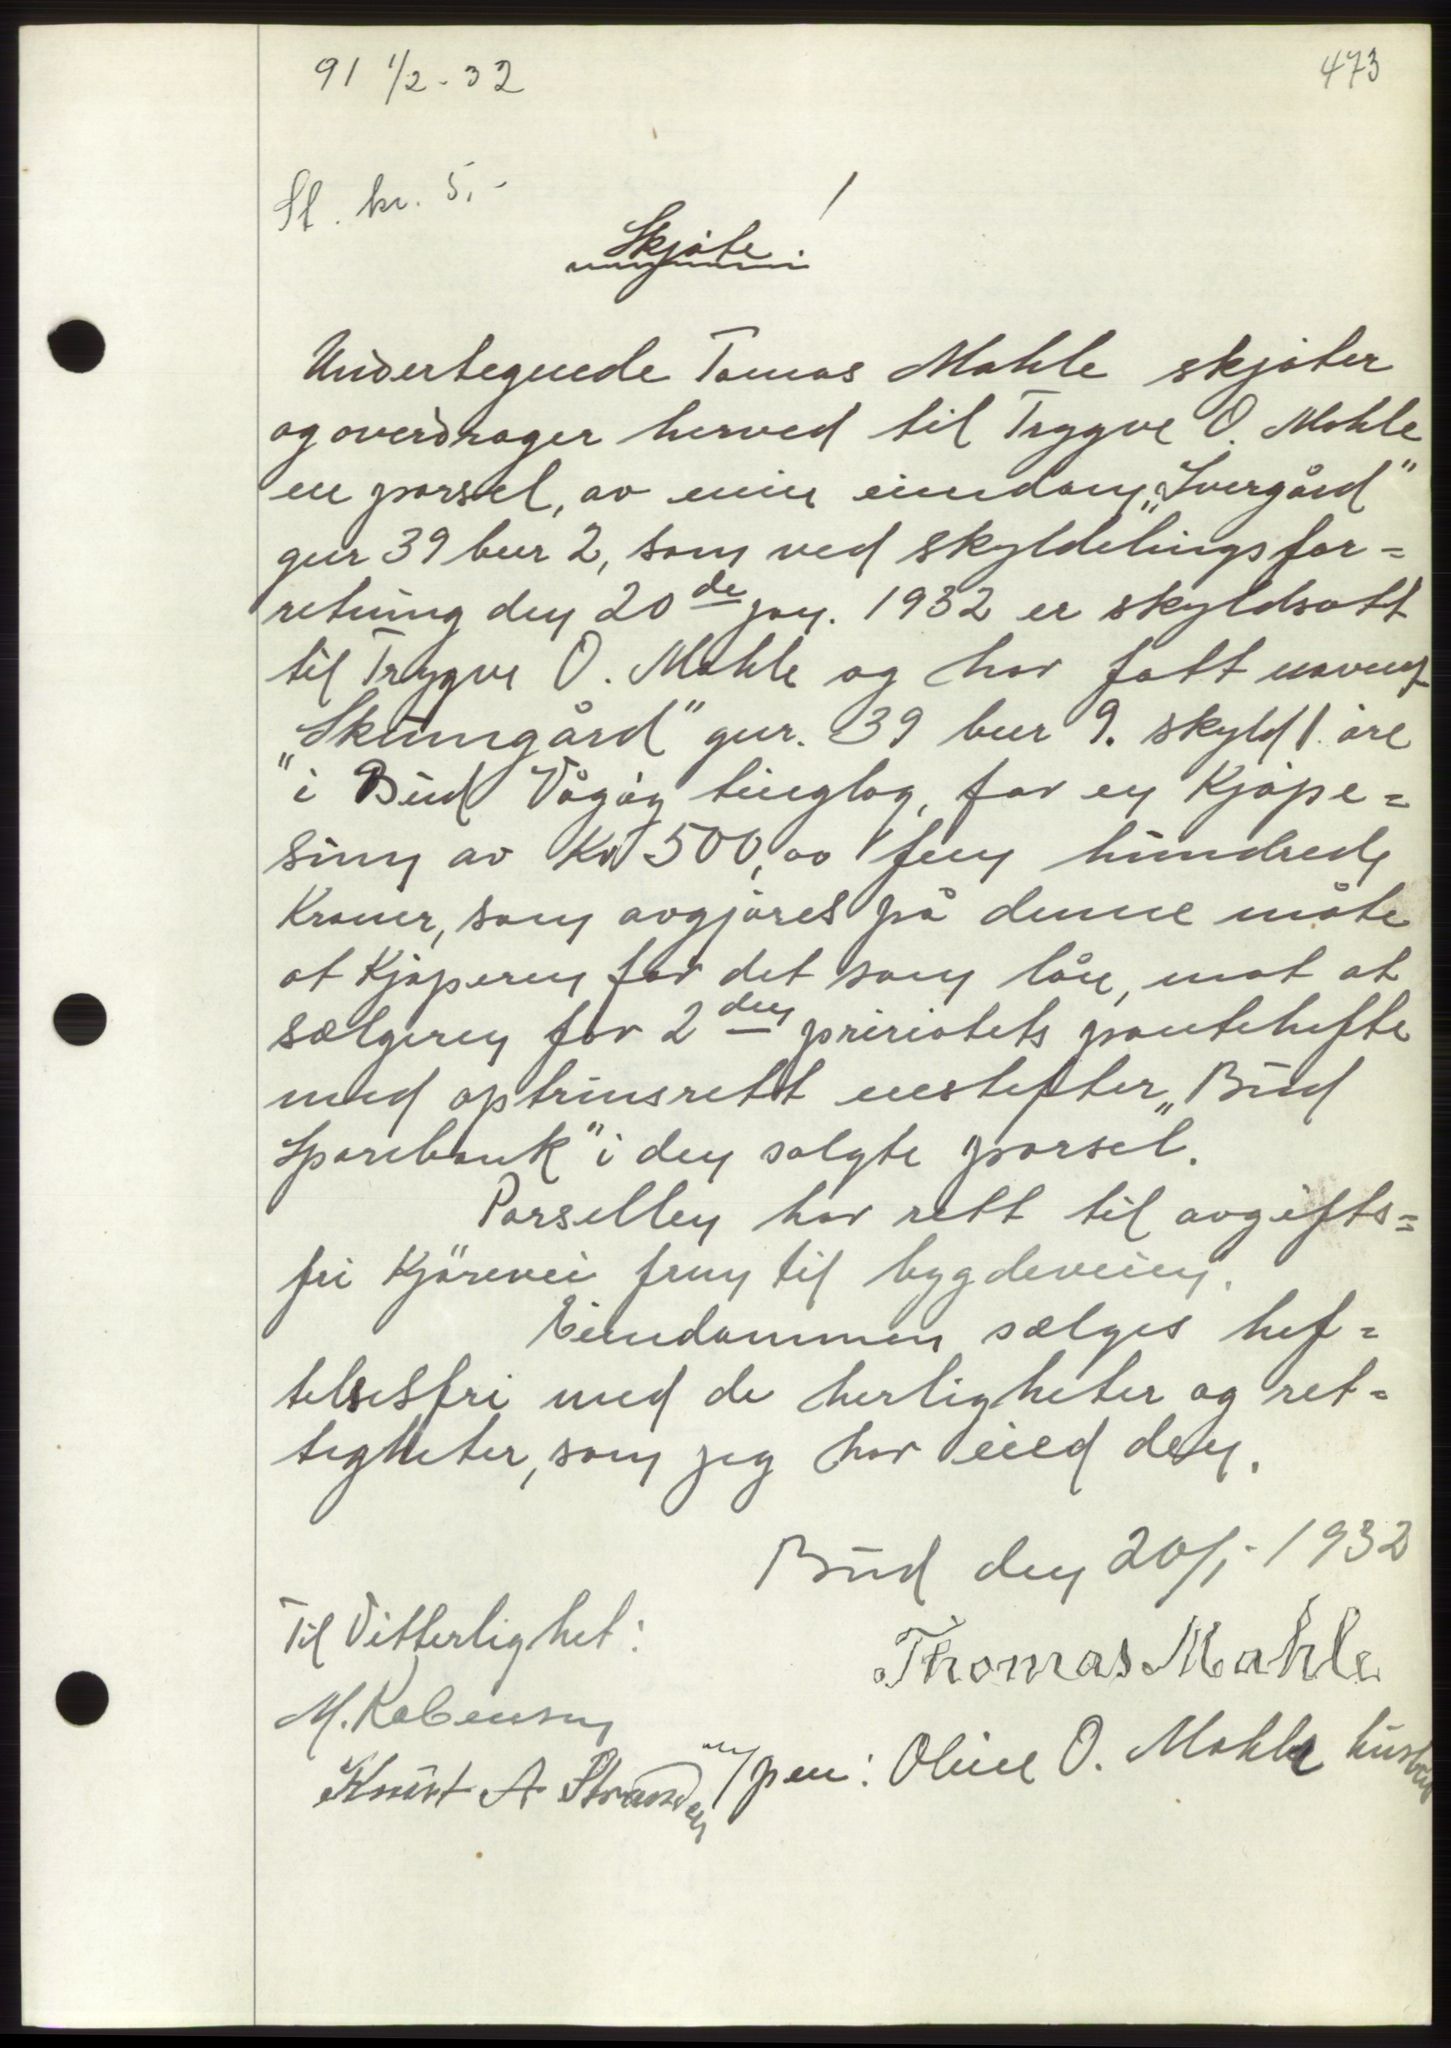 91 1/2-32
473
St. kr. 5,-
Skjøte.
Undertegnede Tomas Mahle skjøter
og overdrager herved til Trygve O. Mahle
en parsel, av min eiendom „Ivergård"
gnr 39 bnr 2, som ved skyldelingsfor=
retning den 20de jan. 1932 er skyldsatt
til Trygve O. Mahle og har fått navnet
„Skumgård" gnr. 39 bnr 9. skyld 1 øre
i Bud Vågøy tinglag, for en Kjøpe=
sum av Kr 500,00 fem hundrede
Kroner, som avgjøres på denne måte
at Kjøperen får det som lån, mot at
sælgeren får 2den pririotets pantehefte
med optrinsrett nestefter „Bud
Sparebank" i den solgte parsel.
Parsellen har rett til avgifts=
fri Kjörevei frem til bygdeveien.
Eiendommen sælges hef=
telsesfri med de herligheter og ret=
tigheter, som jeg har eied den.
Bud den 20/1-1932
Til Vitterlighet:
Thomas Mahle
M.
Knut A Stranden
m/pen: Oline O. Mahle hustru